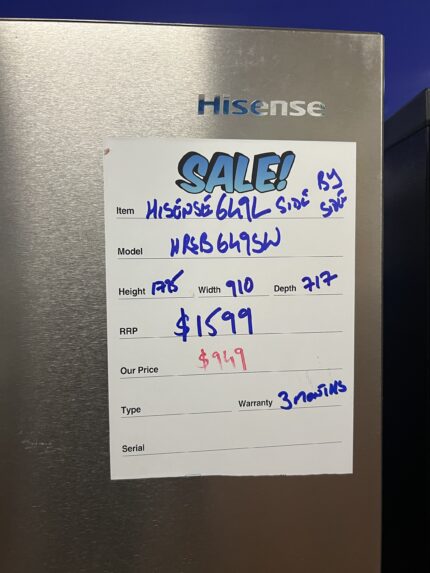 Hisense
SALE!
Item HISENSE 649L SIDE BY SIDE
Model HRSB649SW
Height 1785 Width 910 Depth 717
RRP $1599
Our Price $949
Type Warranty 3 MONTHS
Serial